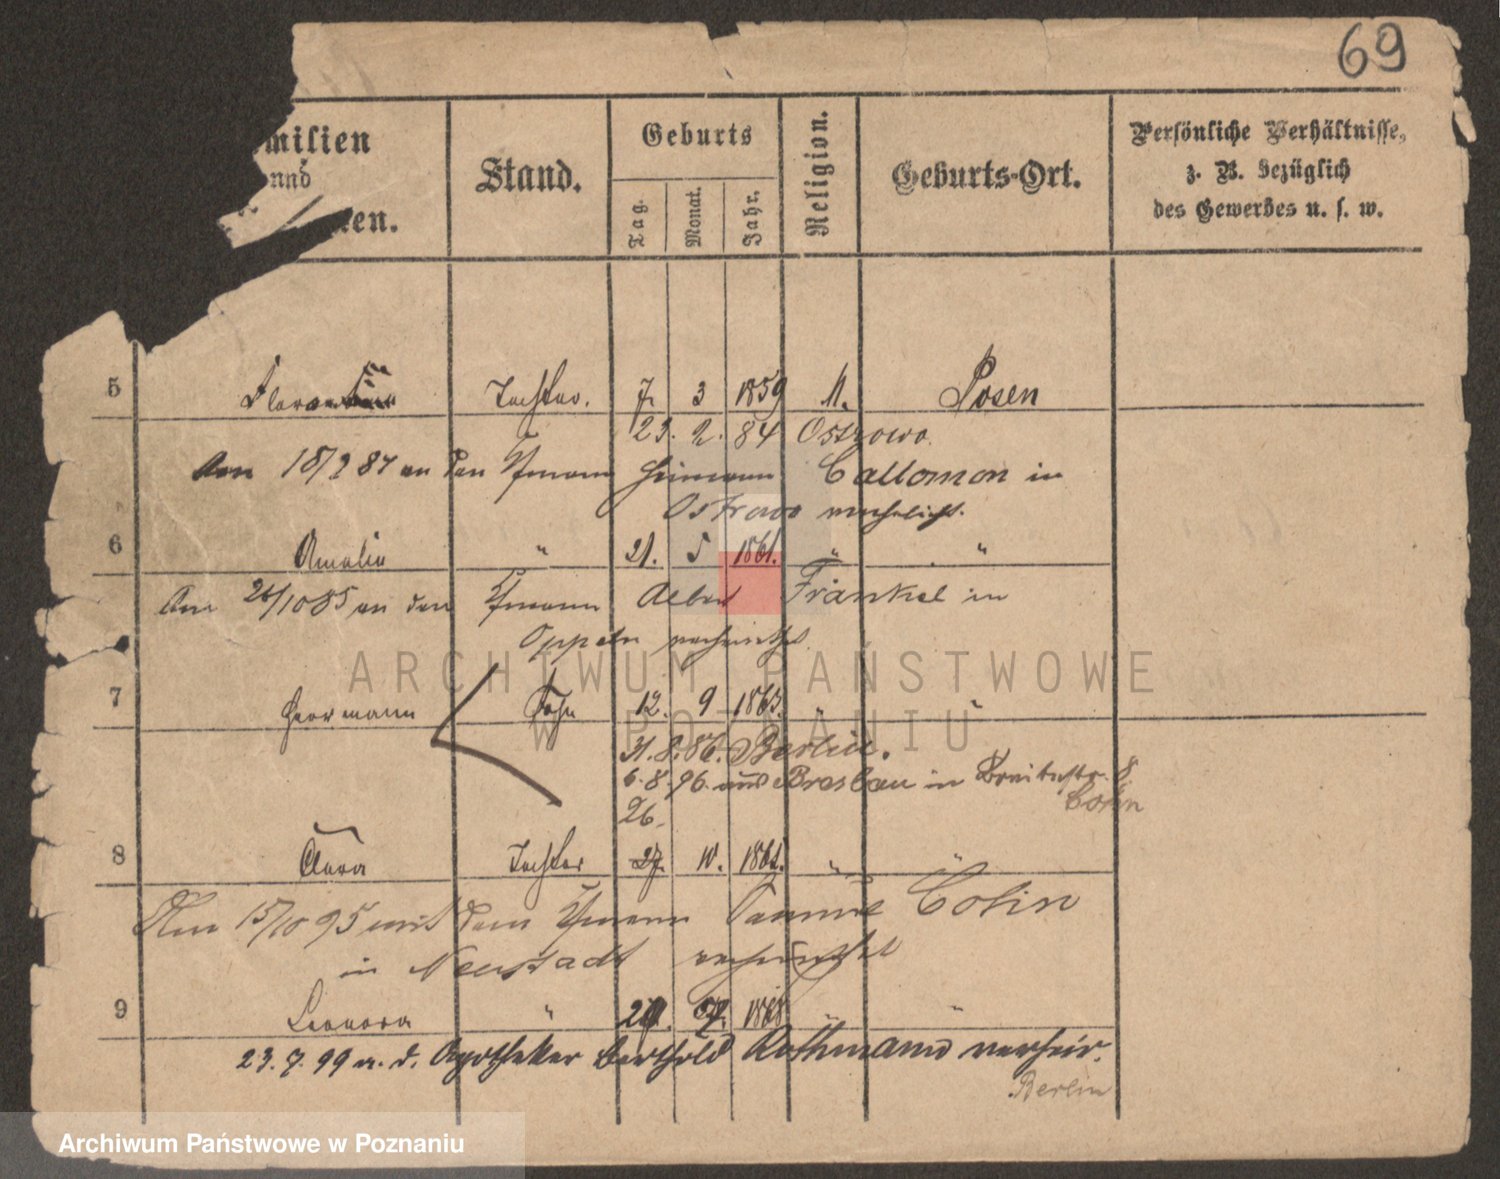 69
milien
und
en.
Stand.
Geburts
Tag.
Monat.
Jahr.
Religion.
Geburts-Ort.
Persönliche Verhältnisse,
z. B. bezüglich
des Gewerbes u. s. w.
5 Tochter. 7. 3 1859 M. Posen
23. 2. 84 Ostrowo.
Am 18/2 84 an den Kfmann Heimann Callomon in
Ostrowo verehelicht.
6 Amalie " 21. 5 1861. " "
Am 26/10 85 an den Kfmann Albert Fränkel in
Oppeln verheirathet
ARCHIWUM PAŃSTWOWE
W POZNANIU
7 Herrmann Sohn 12. 9 1863. " "
31. 8. 86. Berlin.
6. 8. 96. aus Breslau in Breitestr. 8
Cohn
26.
8 Clara Tochter 27. 10. " "
Am 15/10 95 mit dem Kfmann Cohn
in Neustadt verheirathet
9 Leonora " 1868 " "
23. 7. 99 a. d. Apotheker Berthold Rothmann verheir.
Berlin
Archiwum Państwowe w Poznaniu